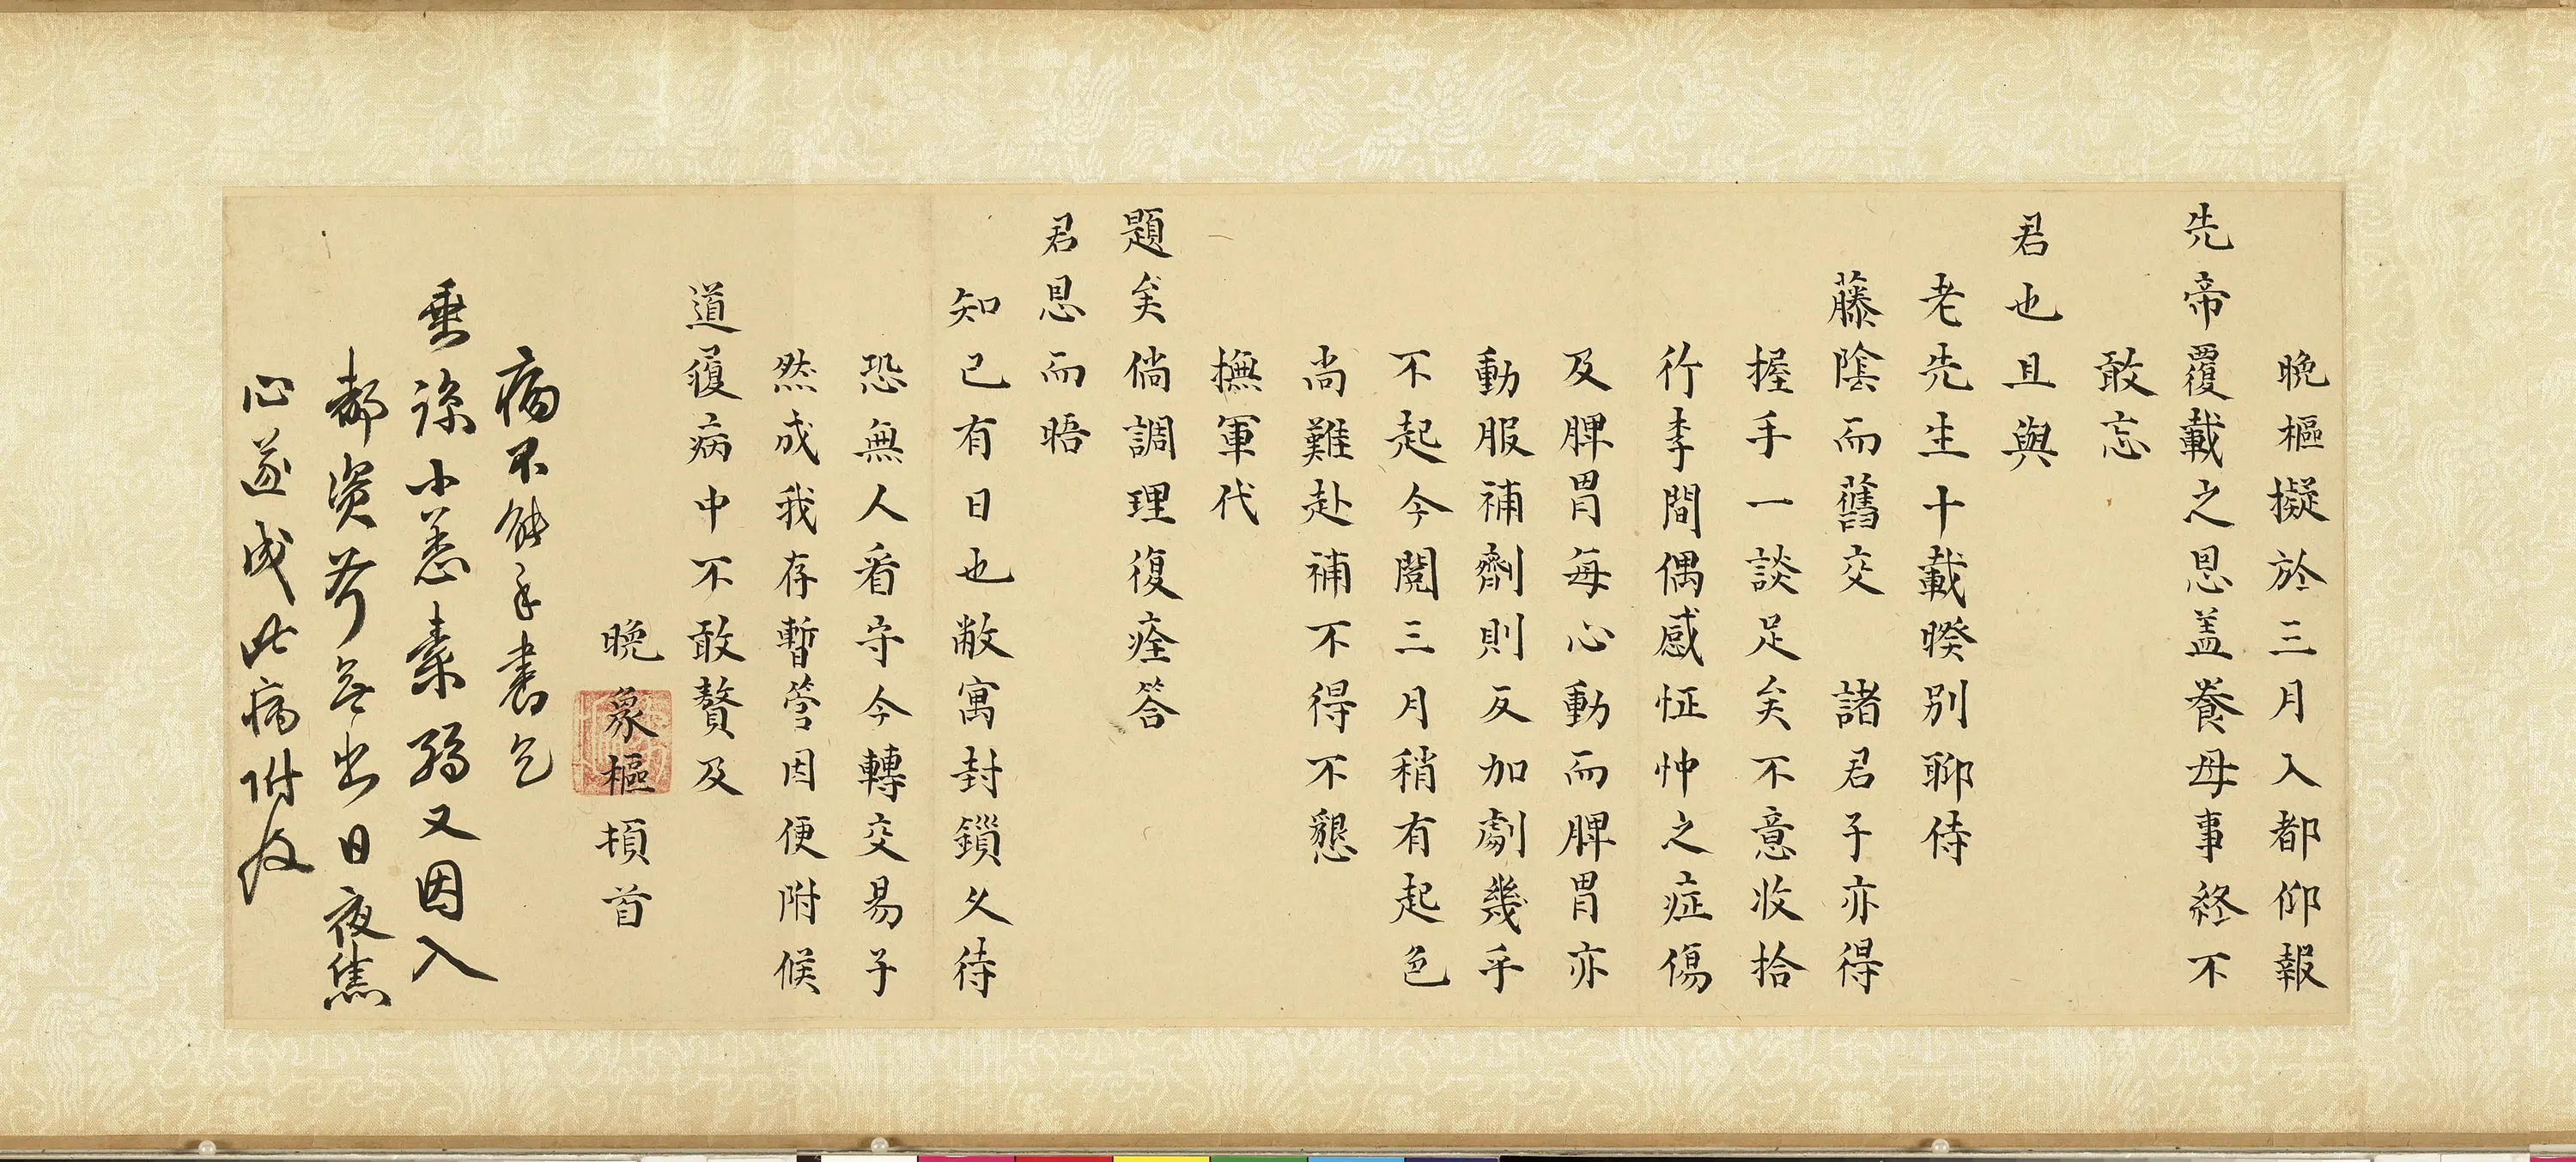 晩樞擬於三月入都仰報
先帝覆載之恩盖養母事終不
敢忘
君也且與
老先生十載暌別聊侍
藤陰而舊交諸君子亦得
握手一談足矣不意收拾
行李間偶感怔忡之症傷
及脾胃每心動而脾胃亦
動服補劑則反加劇幾乎
不起今閱三月稍有起色
尚難赴補不得不懇
撫軍代
題矣倘調理復痊答
君恩而晤
知已有日也敝寓封鎖久待
恐無人看守今轉交易子
然成我存暫管因便附候
道履病中不敢贅及
晩象樞頓首
病不能手書乞
垂諒小恙素弱又因入
都資斧無出日夜焦
心遂成此病附及